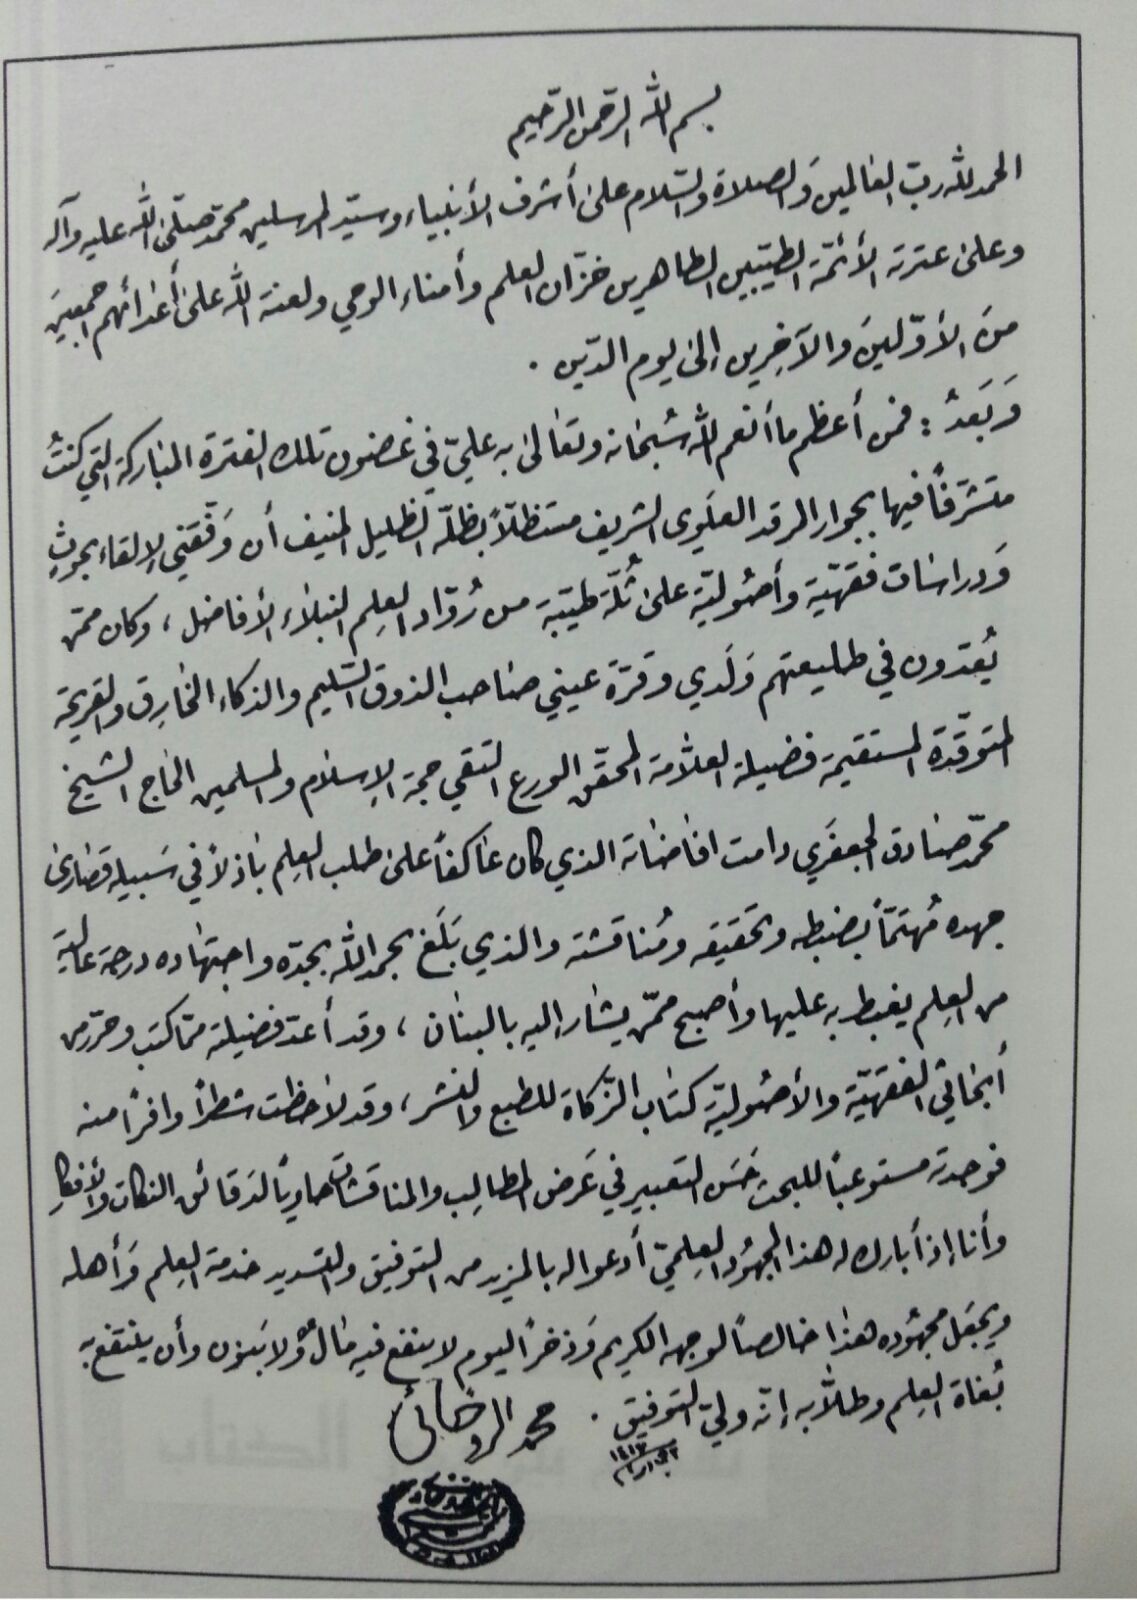 بسم الله الرحمن الرحيم
الحمد لله ربّ العالمين والصلاة والسّلام على أشرف الأنبياء وسيّد المرسلين محمّد صلّى الله عليه وآله
وعلى عترته الأئمّة الطيّبين الطاهرين خزّان العلم وأمناء الوحي ولعنة الله على أعدائهم أجمعين
من الأوّلين والآخرين إلى يوم الدّين .
وَبَعدُ : فمن أعظم ما أنعم الله سُبحانه وتعالى به عليّ في غضون تلك الفترة المباركة التي كنتُ
متشرّفاً فيها بجوار المرقد العلَوي الشريف مستظلّاً بظلّه الظليل المنيف أن وَفّقني لإلقاء بحوثٍ
وَدراسات فقهيّة وأصُوليّة على ثُلّة طيّبة من رُوّاد العِلم النبلاء الأفاضل ، وكان ممّن
يُعَدّون في طليعتهم وَلَدي وقرّة عيني صاحب الذوق السّليم والذكاء الخارق والقريحة
المتوقّدة المستقيمة فضيلة العلّامة المحقّق الورع التقي حجة الإسلام والمسلمين الحاج الشيخ
محمّد صادق الجعفَري دامت افاضاته الذي كان عاكفاً على طلب العِلم باذلاً في سَبيله قصارى
جهده مُهتمّاً بضبطه وتحقيقه ومُناقشته والذي بَلَغ بحمد الله بجدّه واجتهاده درجة عالية
من العِلم يغبط به عليها وأصبح ممّن يشار إليه بالبنان ، وقد أعدّ فضيلته ممّا كتب وحرّر من
أبحاثي الفقهيّة والأصُوليّة كتاب الزّكاة للطبع والنشر ، وقد لاحظت شطراً وافراً منه
فوجدته مستوعباً للبحث حَسَن التعبير في عَرض المطالِب والمناقشات حاوياً لدَقائق النكات والأفكار
وأنا إذ أبارك له هذا المجهُود العِلميّ أدعو له بالمزيد من التوفيق والتسديد خدمة العِلم وَأهله
ويجعَل مجهُوده هذا خالصاً لوجهه الكريم وَذخراً ليوم لا ينفع فيه مالٌ ولا بَنون وأن ينتفع به
بُغاة العِلم وطلّابه إنّه وليّ التوفيق .
محمد الروحاني